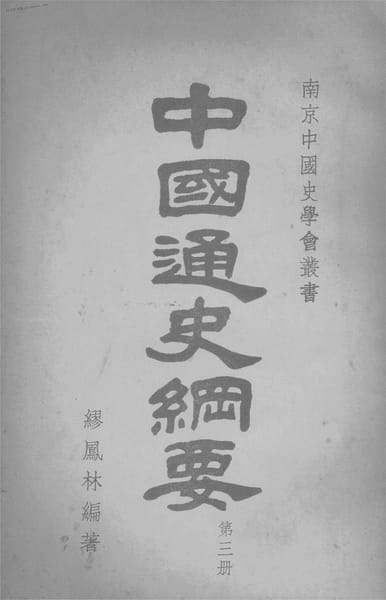 南京中國史學會叢書
中國通史綱要
第三册
繆鳳林編著